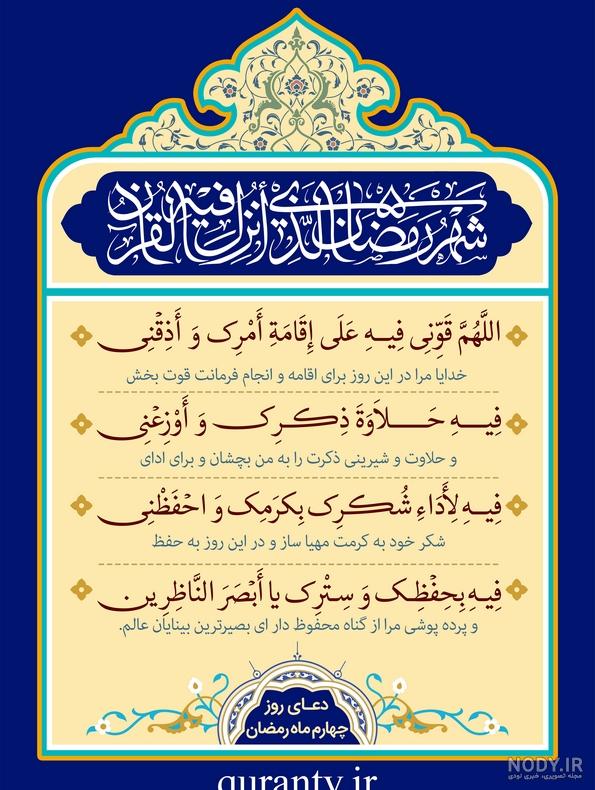 شَهْرُ رَمَضَانَ الَّذِی أُنزِلَ فِیهِ الْقُرْآنُ
اللَّهُمَّ قَوِّنِی فِیهِ عَلَی إِقَامَةِ أَمْرِک وَ أَذِقْنِی
خدایا مرا در این روز برای اقامه و انجام فرمانت قوت بخش
فِیهِ حَلاَوَةَ ذِکْرِک وَ أَوْزِعْنِی
و حلاوت و شیرینی ذکرت را به من بچشان و برای ادای
فِیهِ لِأَدَاءِ شُکْرِک بِکَرَمِک وَ احْفَظْنِی
شکر خود به کرمت مهیا ساز و در این روز به حفظ
فِیهِ بِحِفْظِک وَ سِتْرِک یا أَبْصَرَ النَّاظِرِین
و پرده پوشی مرا از گناه محفوظ دار ای بصیرترین بینایان عالم.
دعای روز
چهارم ماه رمضان
qurantv.ir
NODY.IR
مجله تصویری، خبری نودی